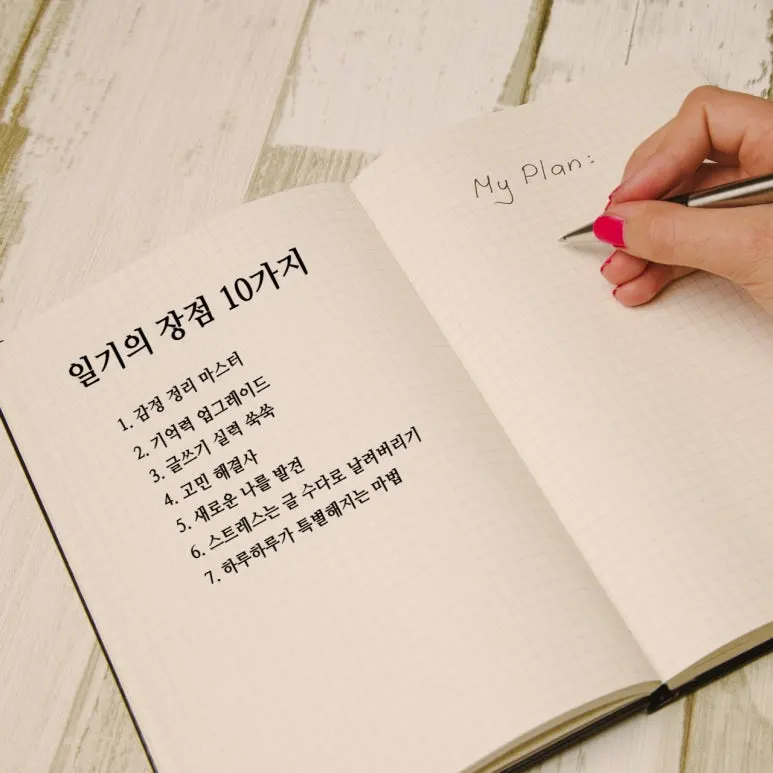 일기의 장점 10가지
1. 감정 정리 마스터
2. 기억력 업그레이드
3. 글쓰기 실력 쑥쑥
4. 고민 해결사
5. 새로운 나를 발견
6. 스트레스는 글 수다로 날려버리기
7. 하루하루가 특별해지는 마법
My Plan: